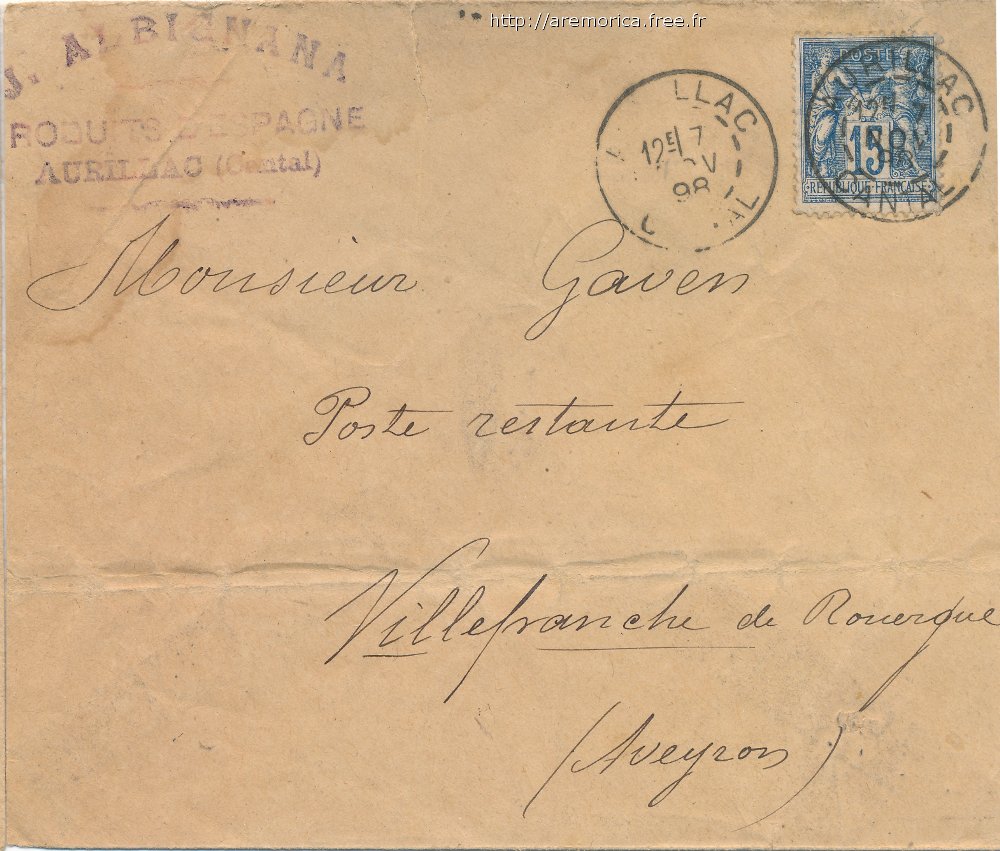 http://aremorica.free.fr
J. ALBIGNANA
RODUITS D'ESPAGNE
AURILLAC (Cantal)
LLAC
12E 7
98
AL
POSTE
15
REPUBLIQUE FRANÇAISE
AURILLAC
12E 7
NOV
98
CANTAL
Monsieur Gaven
Poste restante
Villefranche de Rouergue
(Aveyron)